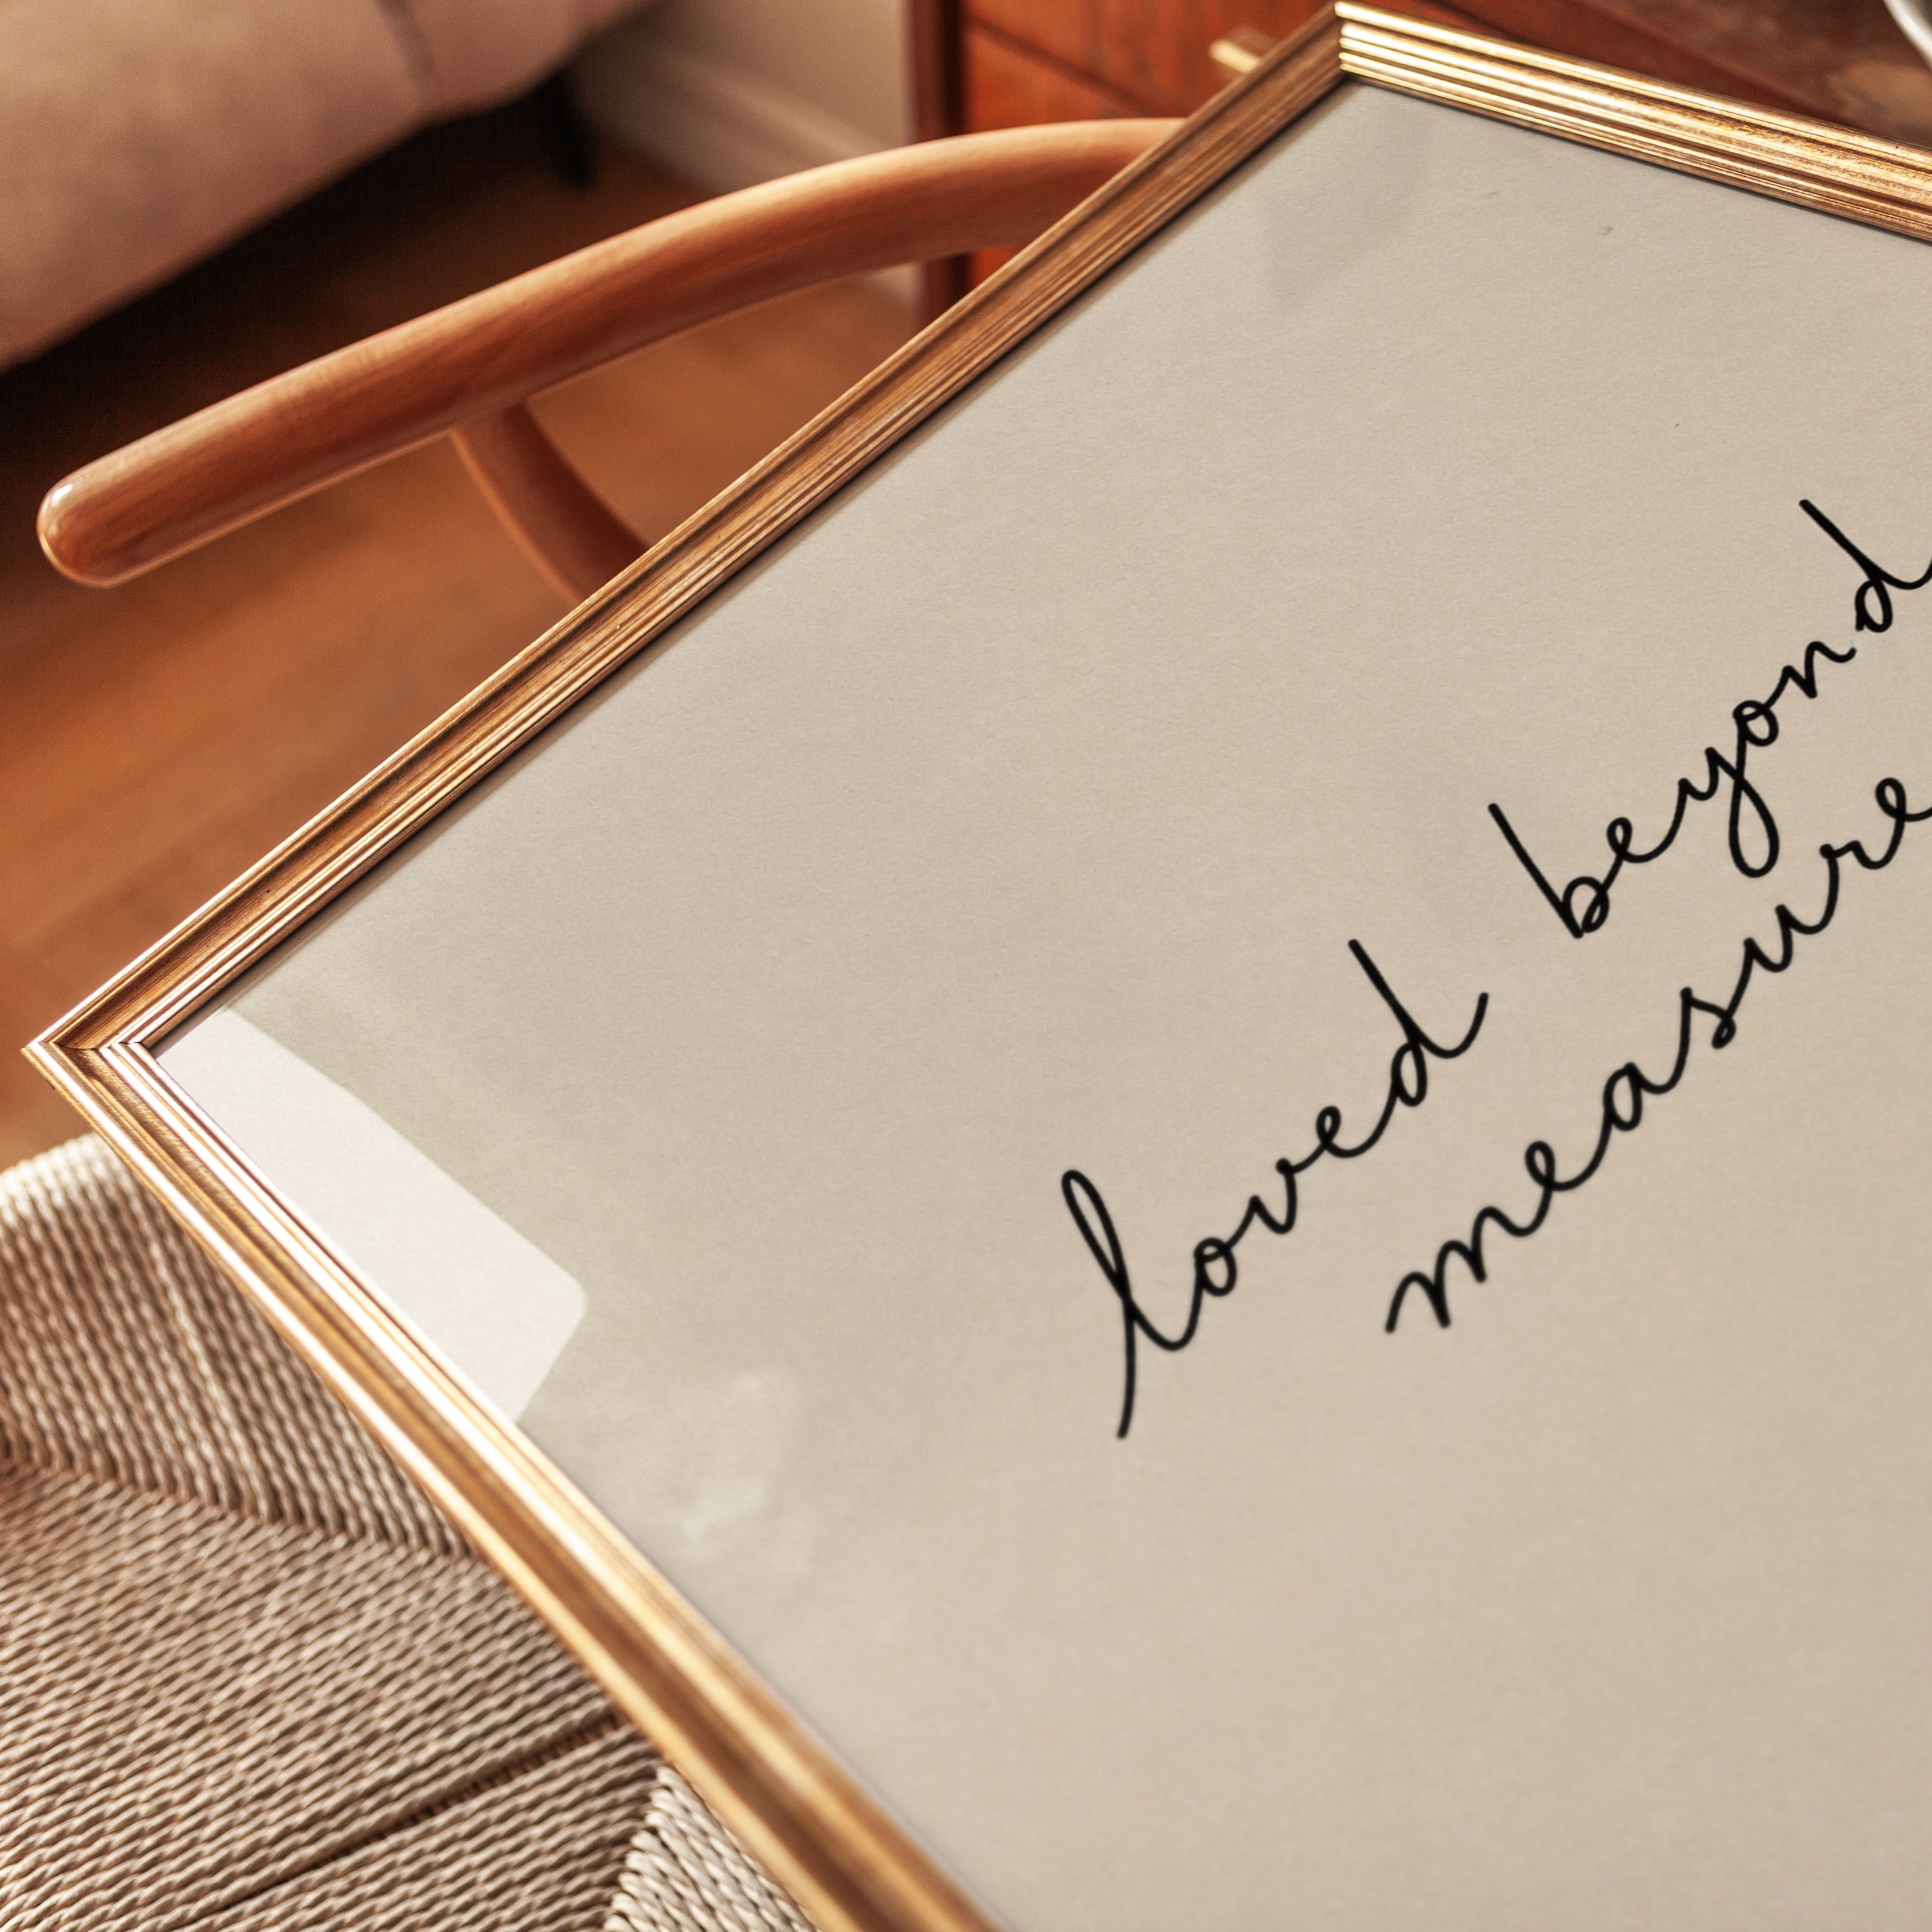 loved beyond
measure